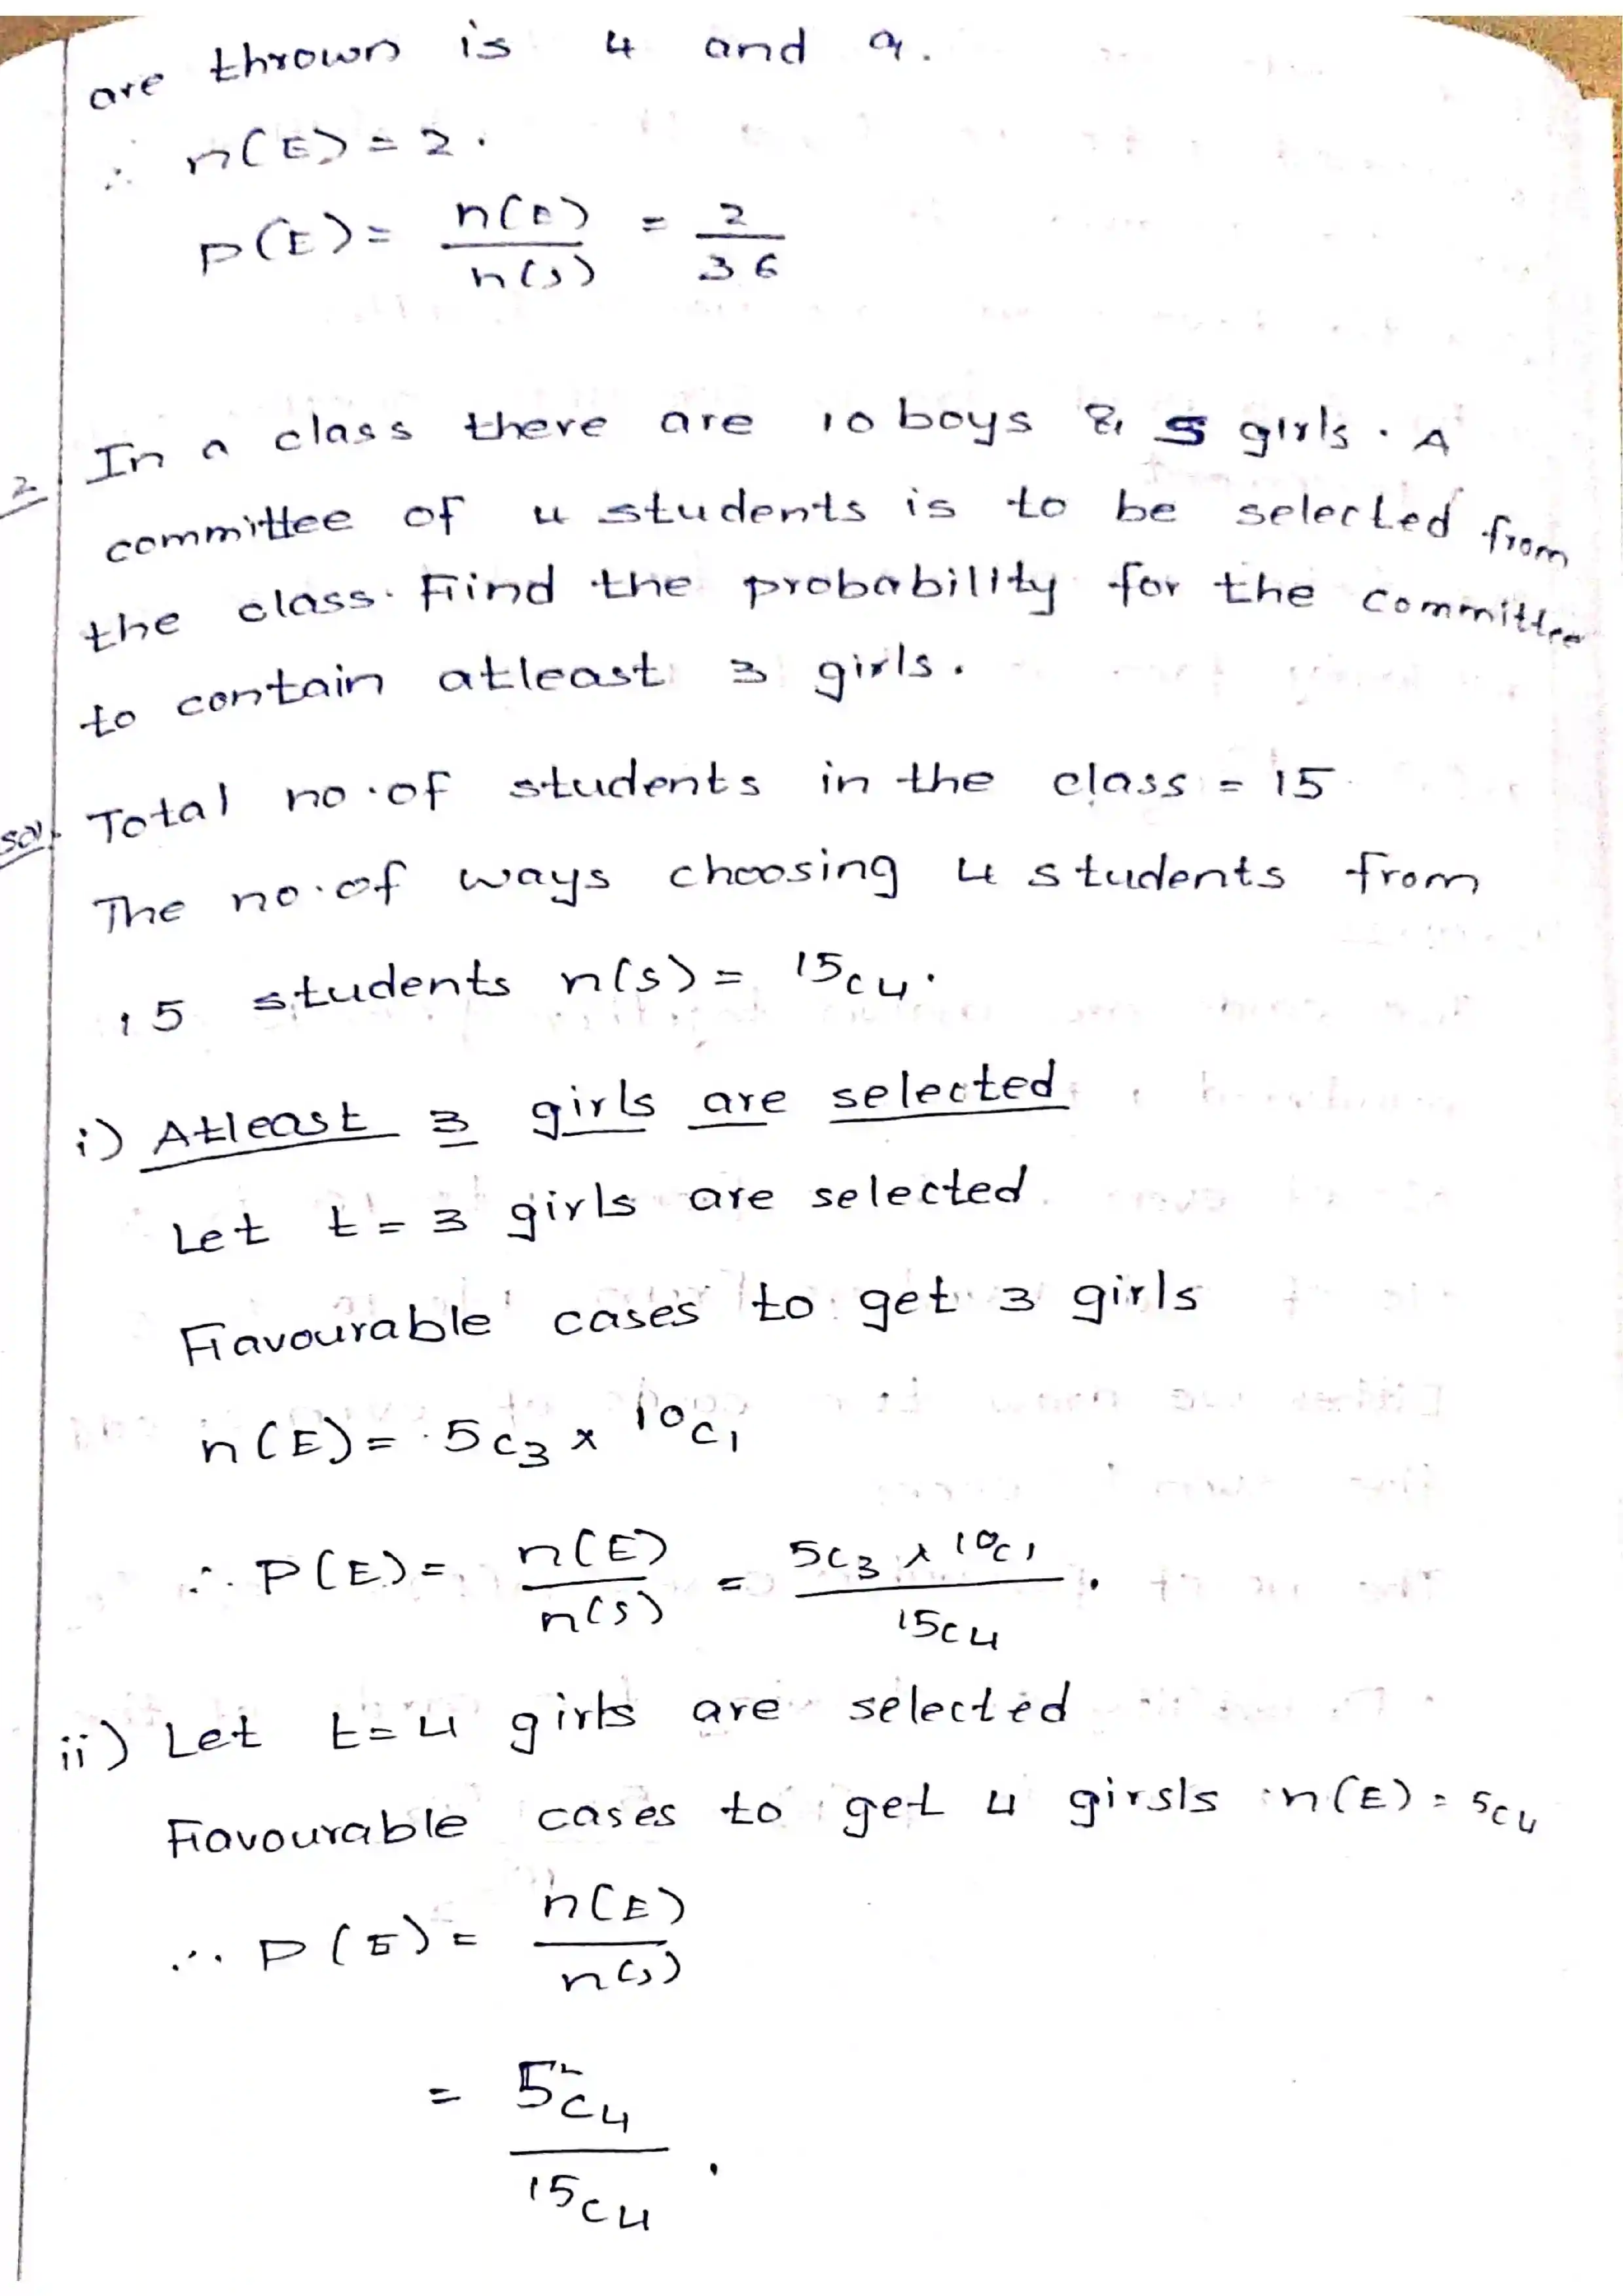 are thrown is 4 and 9.
∴ n(E) = 2.
P(E) = n(E)/n(S) = 2/36
2. In a class there are 10 boys & 5 girls. A
committee of 4 students is to be selected from
the class. Find the probability for the committee
to contain atleast 3 girls.
Sol. Total no. of students in the class = 15
The no. of ways choosing 4 students from
15 students n(S) = 15c4.
i) Atleast 3 girls are selected
Let t = 3 girls are selected
Favourable cases to get 3 girls
n(E) = 5c3 x 10c1
∴ P(E) = n(E)/n(S) = 5c3 x 10c1/15c4.
ii) Let t = 4 girls are selected
Favourable cases to get 4 girsls n(E) = 5c4
∴ P(E) = n(E)/n(S)
= 5c4/15c4.